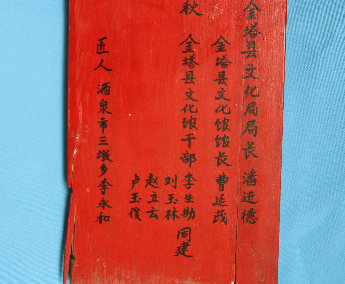 金塔县文化局局长 潘进德
金塔县文化馆馆长 曹延茂
秋 金塔县文化馆干部 李生勋
刘玉林
赵立云
卢玉俊
同建
匠人 酒泉市三墩乡李永和